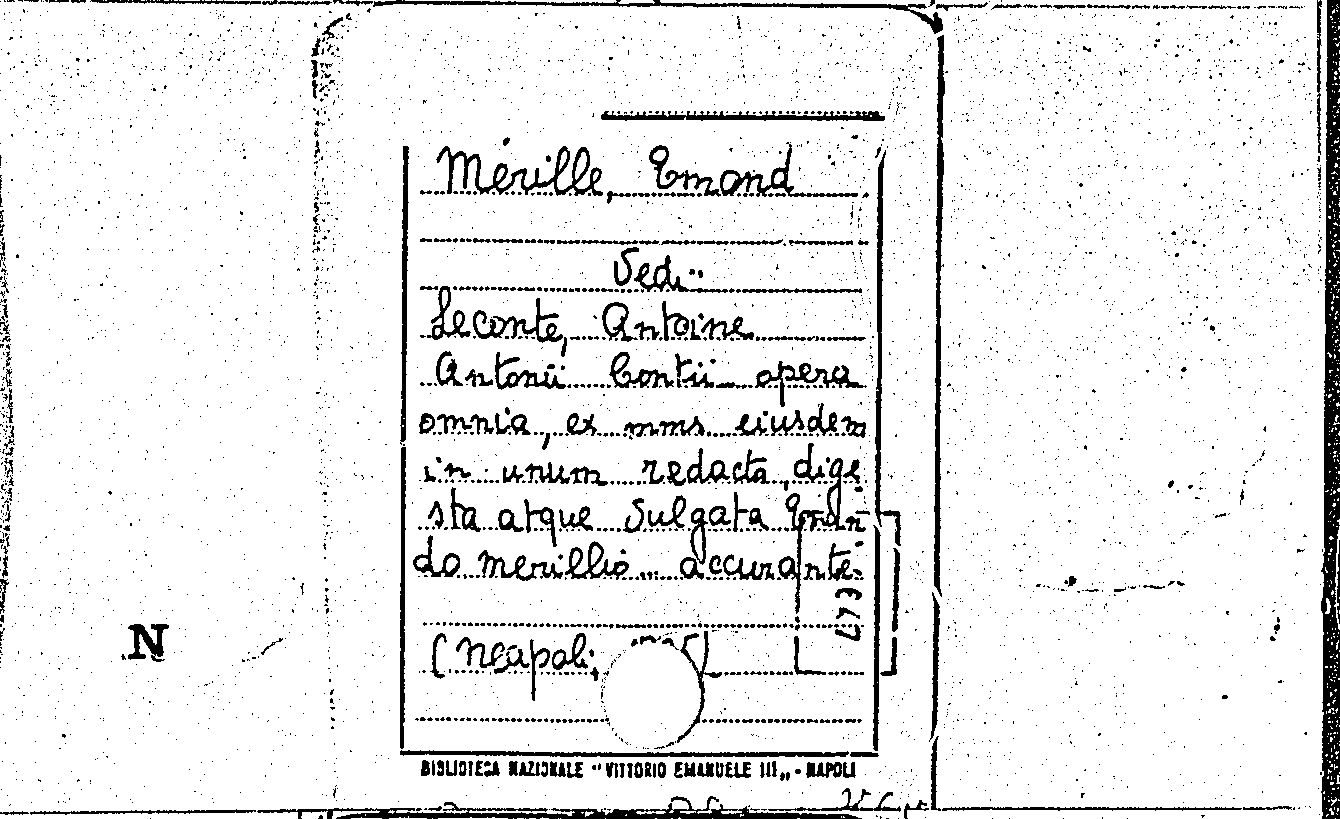 Mérille, Emond
Vedi:
Leconte, Antoine
Antonii Contii opera
omnia, ex mms eiusdem
in unum redacta, dige
sta atque Sulgata Emun
do merillio accurante.
(Neapoli,
N
BIBLIOTECA NAZIONALE "VITTORIO EMANUELE III„ - NAPOLI